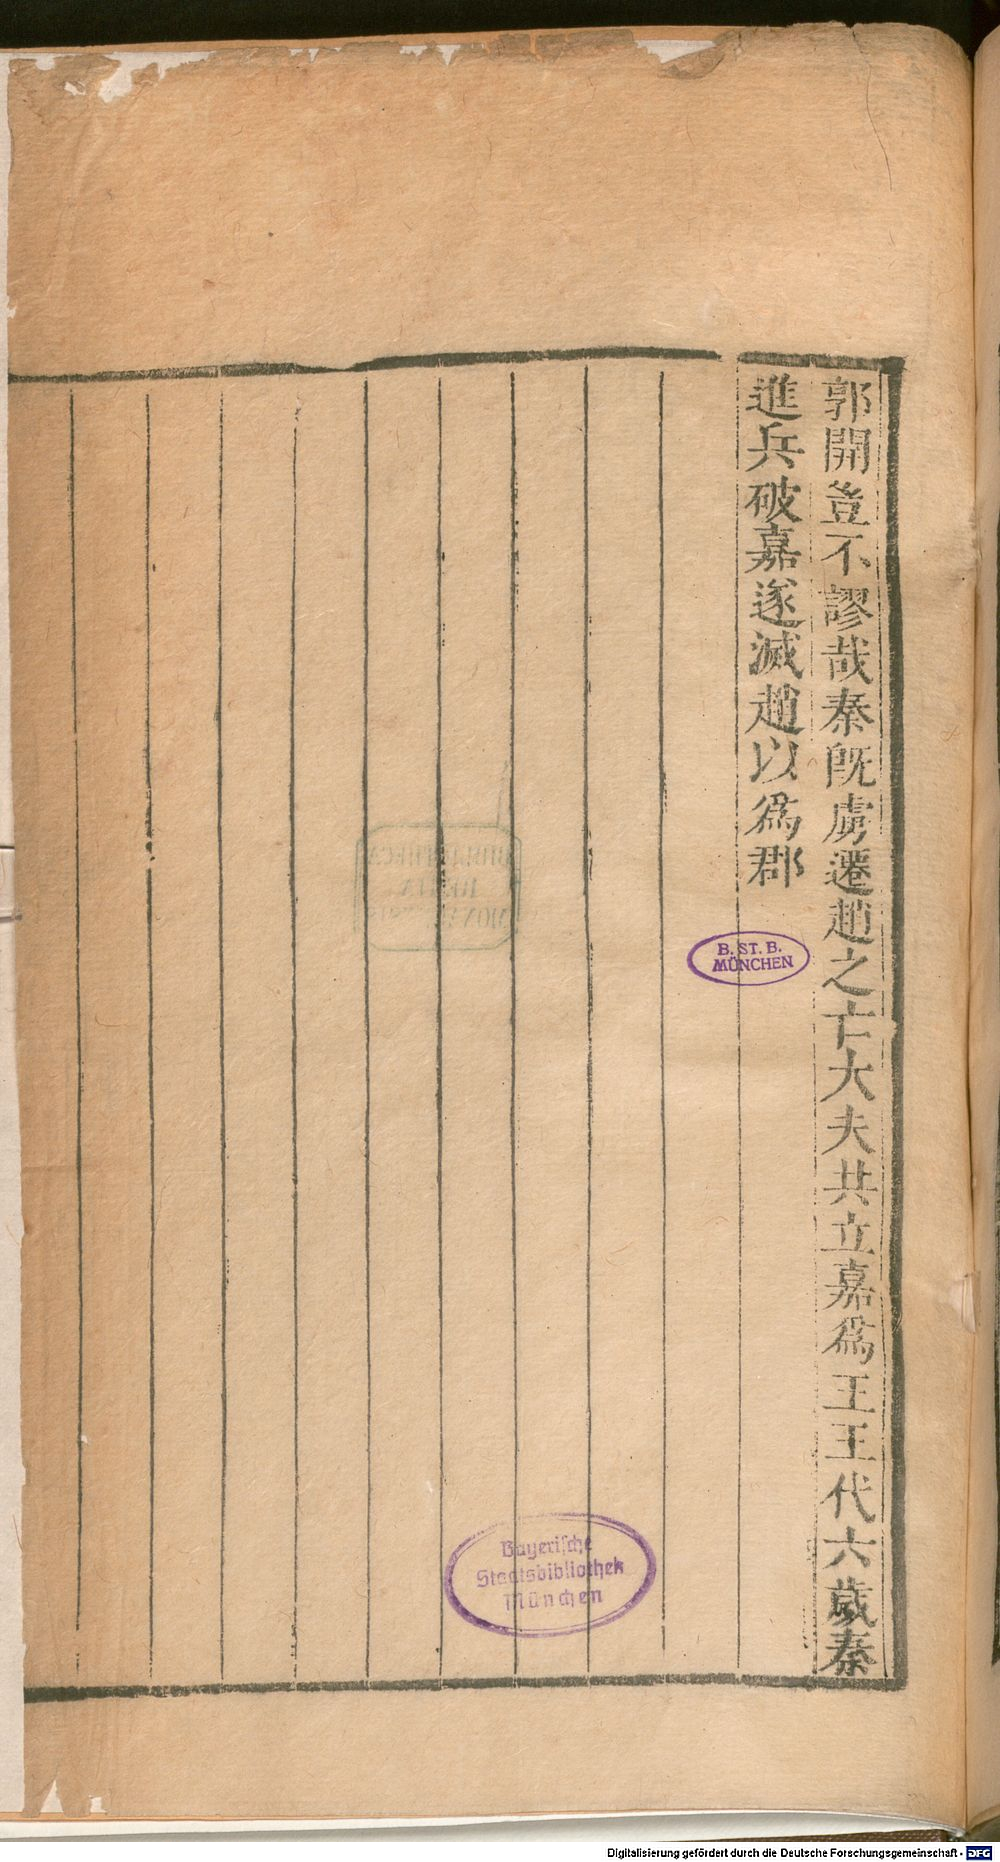 郭開豈不謬哉秦既虜遷趙之亡大夫共立嘉爲王王代六歲秦
進兵破嘉遂滅趙以爲郡
B. ST. B.
MÜNCHEN
BIBLIOTHECA
REGIA
MONACENSIS
Bayerische
Staatsbibliothek
München
Digitalisierung gefördert durch die Deutsche Forschungsgemeinschaft - DFG